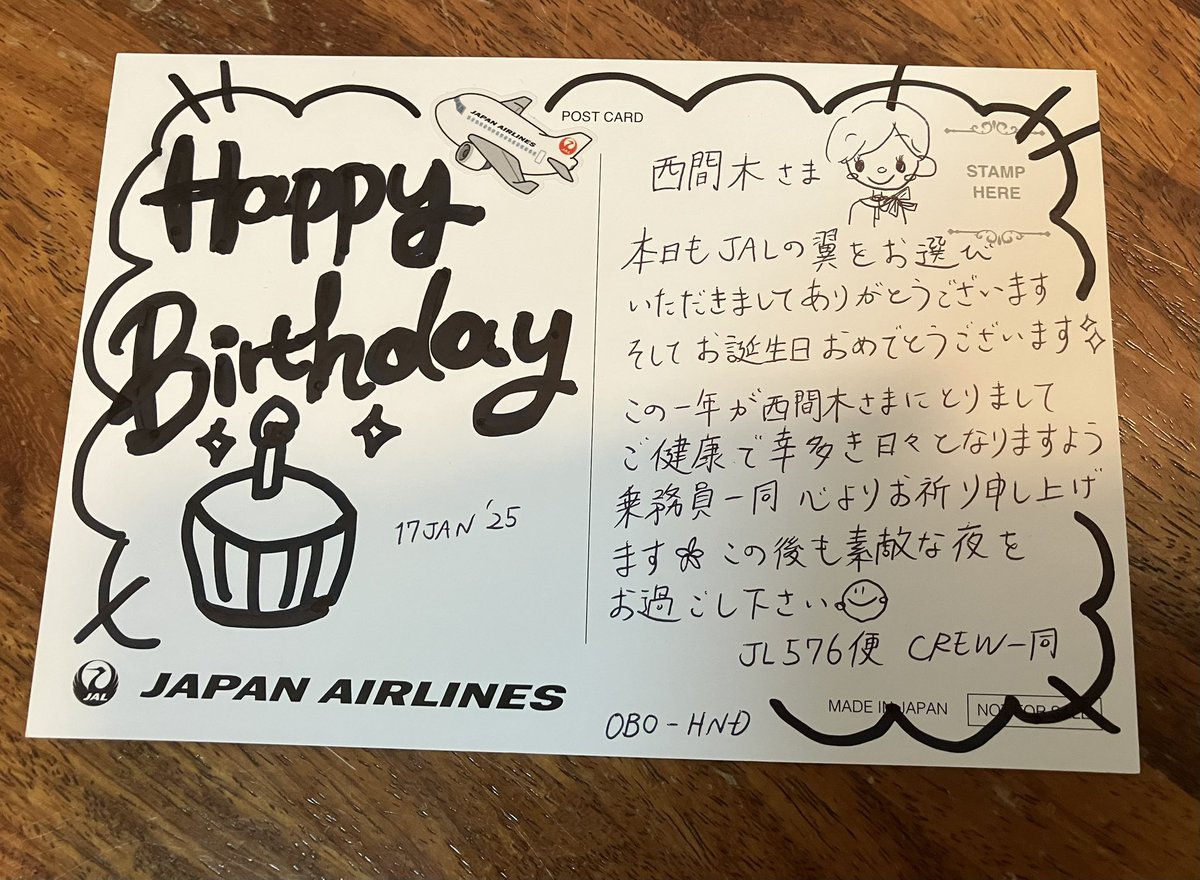 Happy
Birthday
17 JAN '25
JAL
JAPAN AIRLINES
JAPAN AIRLINES
JAL
POST CARD
STAMP
HERE
西間木さま
本日もJALの翼をお選び
いただきましてありがとうございます
そしてお誕生日おめでとうございます
この一年が西間木さまにとりまして
ご健康で幸多き日々となりますよう
乗務員一同 心よりお祈り申し上げ
ます この後も素敵な夜を
お過ごし下さい
JL576便 CREW一同
OBO-HND
MADE IN JAPAN
NOT FOR SALE